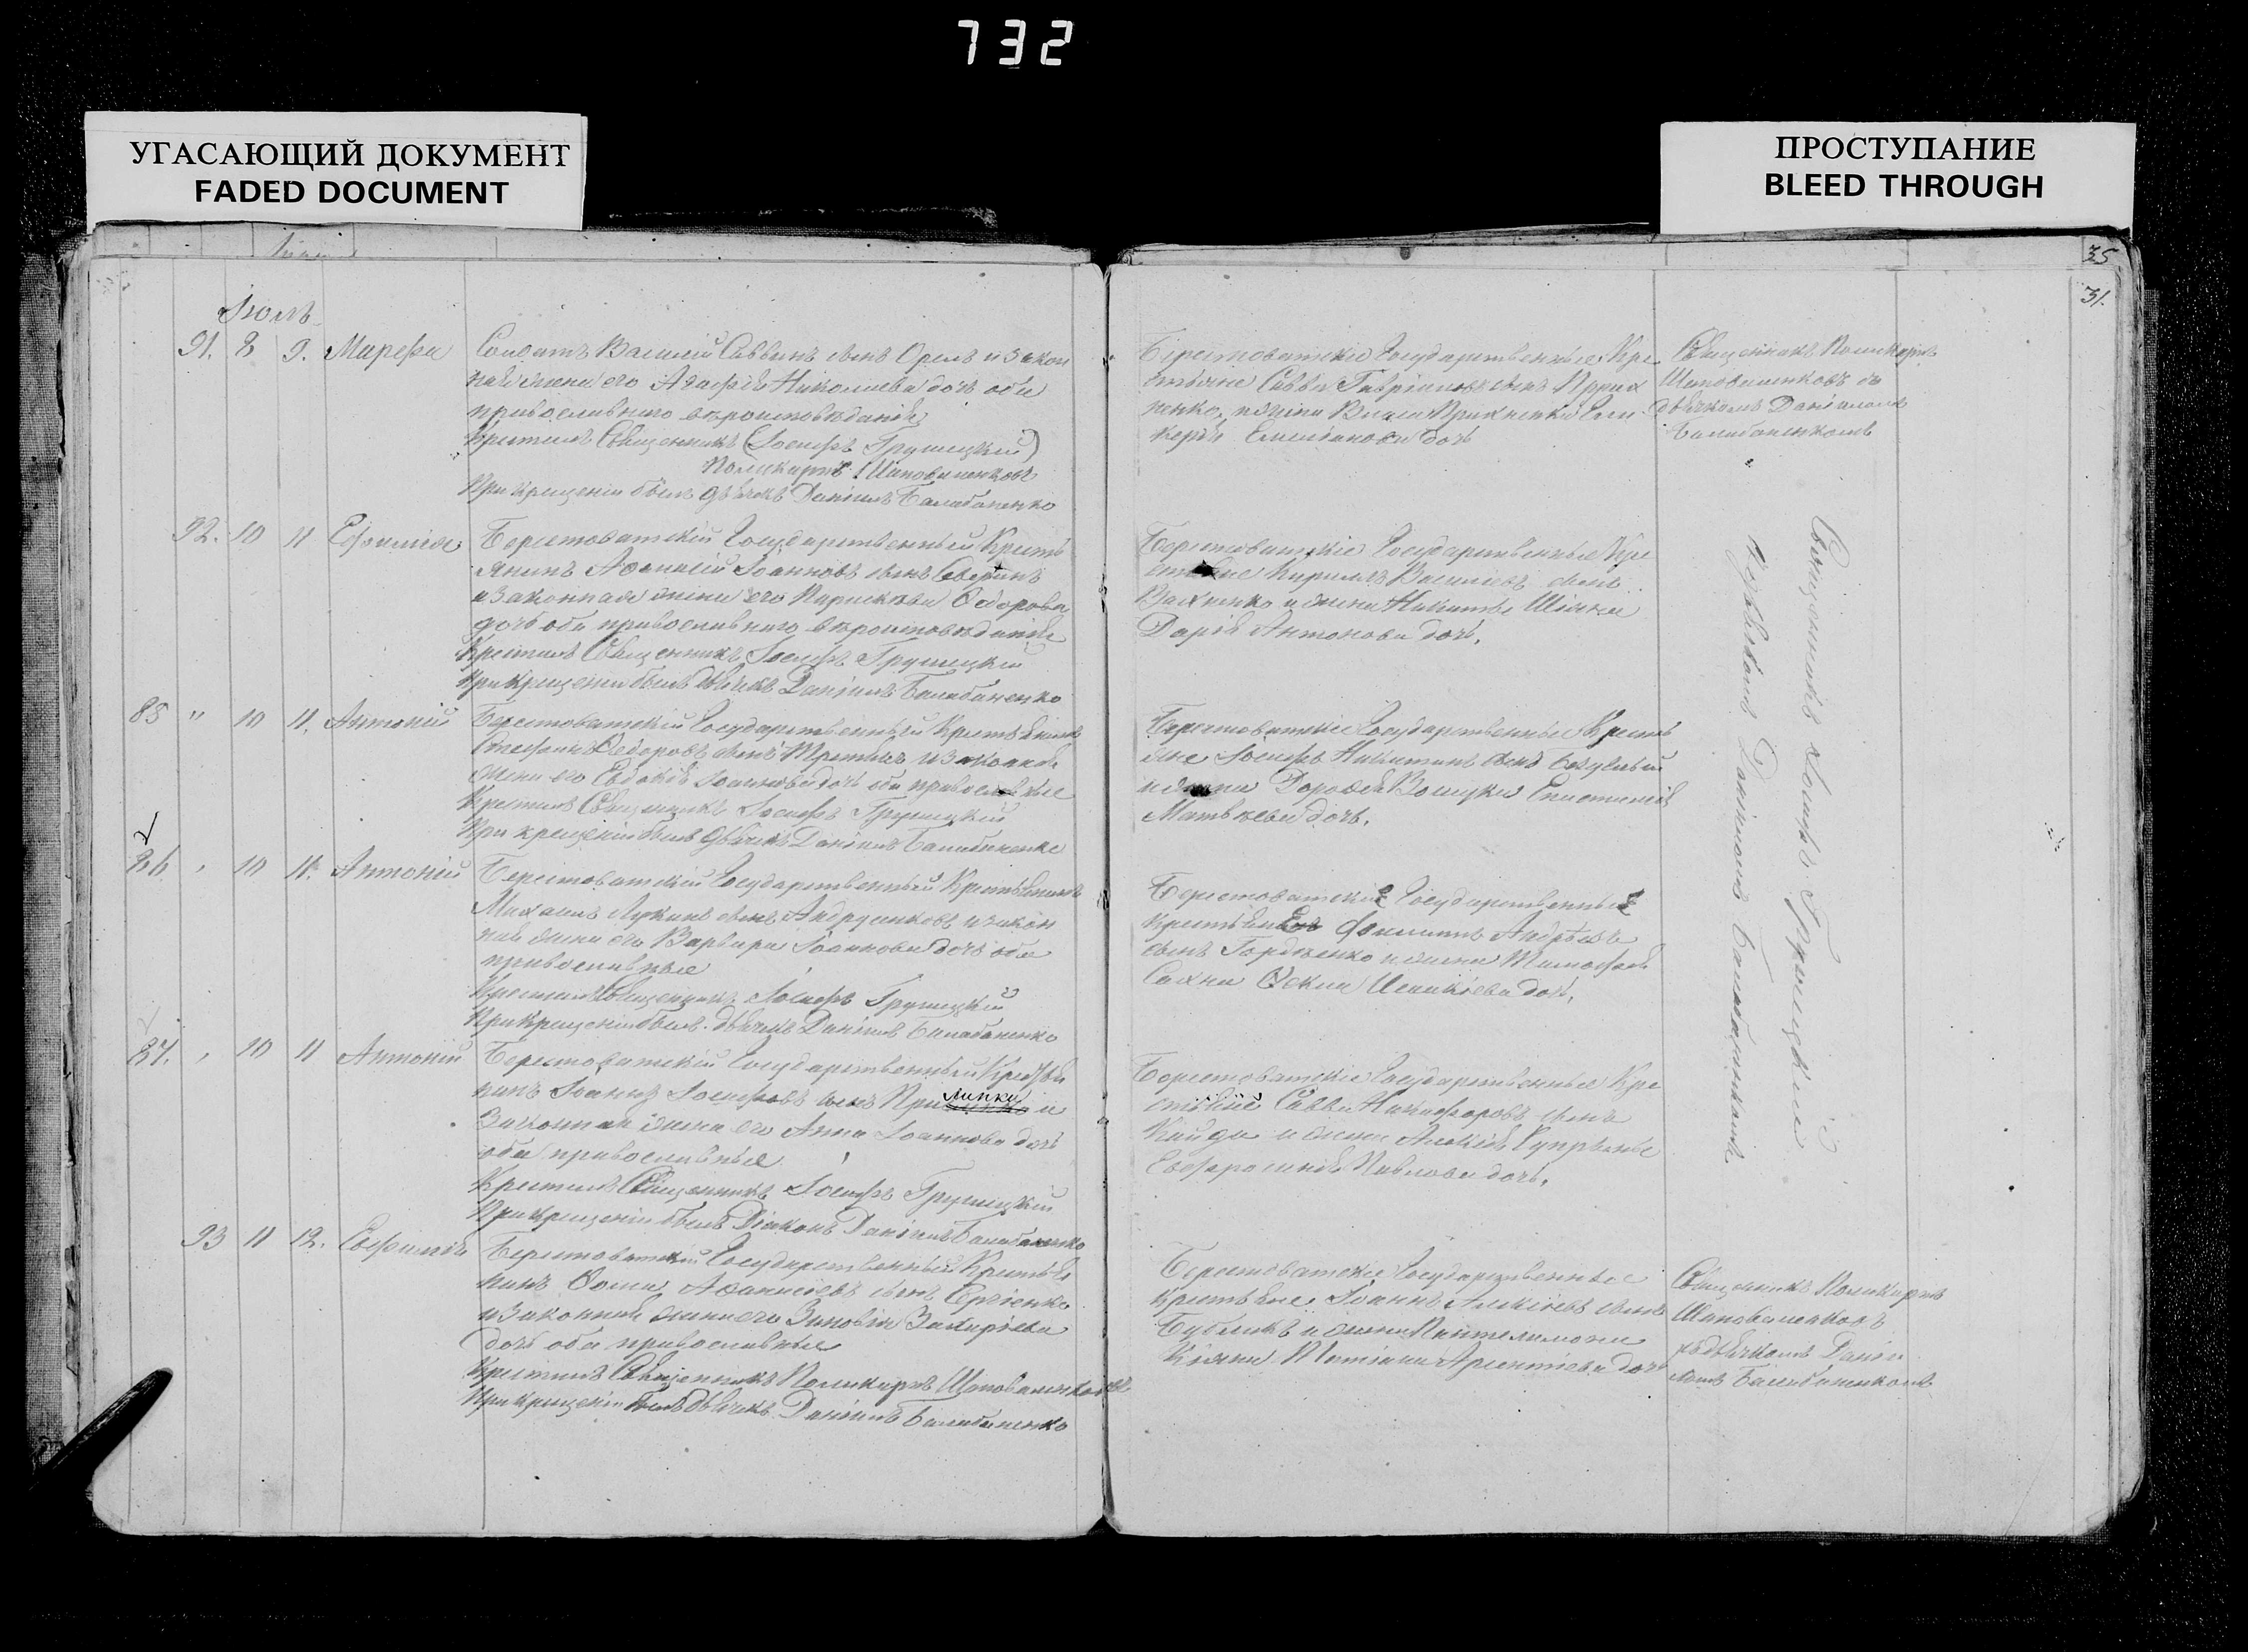 732
УГАСАЮЩИЙ ДОКУМЕНТ
FADED DOCUMENT
ПРОСТУПАНИЕ
BLEED THROUGH
35
31.
Іюль
91. 8 9. Марѳа
Солдатъ Василій Саввинъ сынъ Орелъ и закон
ная жена его Агафія Николаева дочь оба
православнаго вѣроисповѣданія
Крестилъ Священникъ (Іосифъ Грушецкій)
Поликарпъ Шаповаленковъ
При крещеніи былъ дьячекъ Даніилъ Балабаненко
Берестоватскіе Государственные Кре
стьяне Савва Гавріиловъ сынъ
жена Гли
керія Емельянова дочь
Священникъ Поликарпъ
Шаповаленковъ съ
дьячкомъ Даніиломъ
Балабаненкомъ
92. 10 11 Евфимія
Берестоватскій Государственный Кресть
янинъ Аѳанасій Іоанновъ сынъ Северинъ
и законная жена его Параскева Ѳедорова
дочь оба православнаго вѣроисповѣданія
Крестилъ Священникъ Іосифъ Грушецкій
При крещеніи былъ дьячекъ Даніилъ Балабаненко
Берестоватскіе Государственные Кре
стьяне Кирилъ Васильевъ сынъ
Вахненко и жена Никиты
Дарія Антонова дочь.
Священникъ Іосифъ Грушецкій
съ дьячкомъ Даніиломъ Балабаненкомъ
85 " 10 11. Антоній
Берестоватскій Государственный Крестьянинъ
Стефанъ Ѳедоровъ сынъ Третякъ и законная
жена его Евдокія Іоаннова дочь оба православные
Крестилъ Священникъ Іосифъ Грушецкій
При крещеніи былъ дьячекъ Даніилъ Балабаненко
Берестоватскіе Государственные Кресть
яне Іосифъ Никитинъ сынъ
и жена Дорофея Епистимія
Матвѣева дочь.
86 " 10 11. Антоній
Берестоватскій Государственный Крестьянинъ
Михаилъ Лукинъ сынъ Андрусенковъ и закон
ная жена его Варвара Іоаннова дочь оба
православные
Крестилъ Священникъ Іосифъ Грушецкій
При крещеніи былъ дьячекъ Даніилъ Балабаненко
Берестоватскіе Государственные
Крестьяне Филиппъ Андреевъ
сынъ Гордіенко и жена Тимофея
Сахна Ѳекла дочь.
87. " 10 11 Антоній
Берестоватскій Государственный Крестья
нинъ Іоаннъ Іосифовъ сынъ и
законная жена его Анна Іоаннова дочь
оба православные
Крестилъ Священникъ Іосифъ Грушецкій
При крещеніи былъ Діаконъ Даніилъ Балабаненко
Берестоватскіе Государственные Кре
стьяне Савва Никифоровъ сынъ
Кайда и жена Алексѣя
Евфросинія Павлова дочь.
93 11 12. Евфимія
Берестоватскій Государственный Крестья
нинъ Ѳома Аѳанасіевъ сынъ Сергіенко
и законная жена его Зиновія Захаріева
дочь оба православные
Крестилъ Священникъ Поликарпъ Шаповаленковъ
При крещеніи былъ дьячекъ Даніилъ Балабаненко
Берестоватскіе Государственные
Крестьяне Іоаннъ Алексіевъ сынъ
Бубликъ и жена Пантелимона
Кіяна Татіана дочь
Священникъ Поликарпъ
Шаповаленковъ
съ дьячкомъ Дані
ломъ Балабаненкомъ